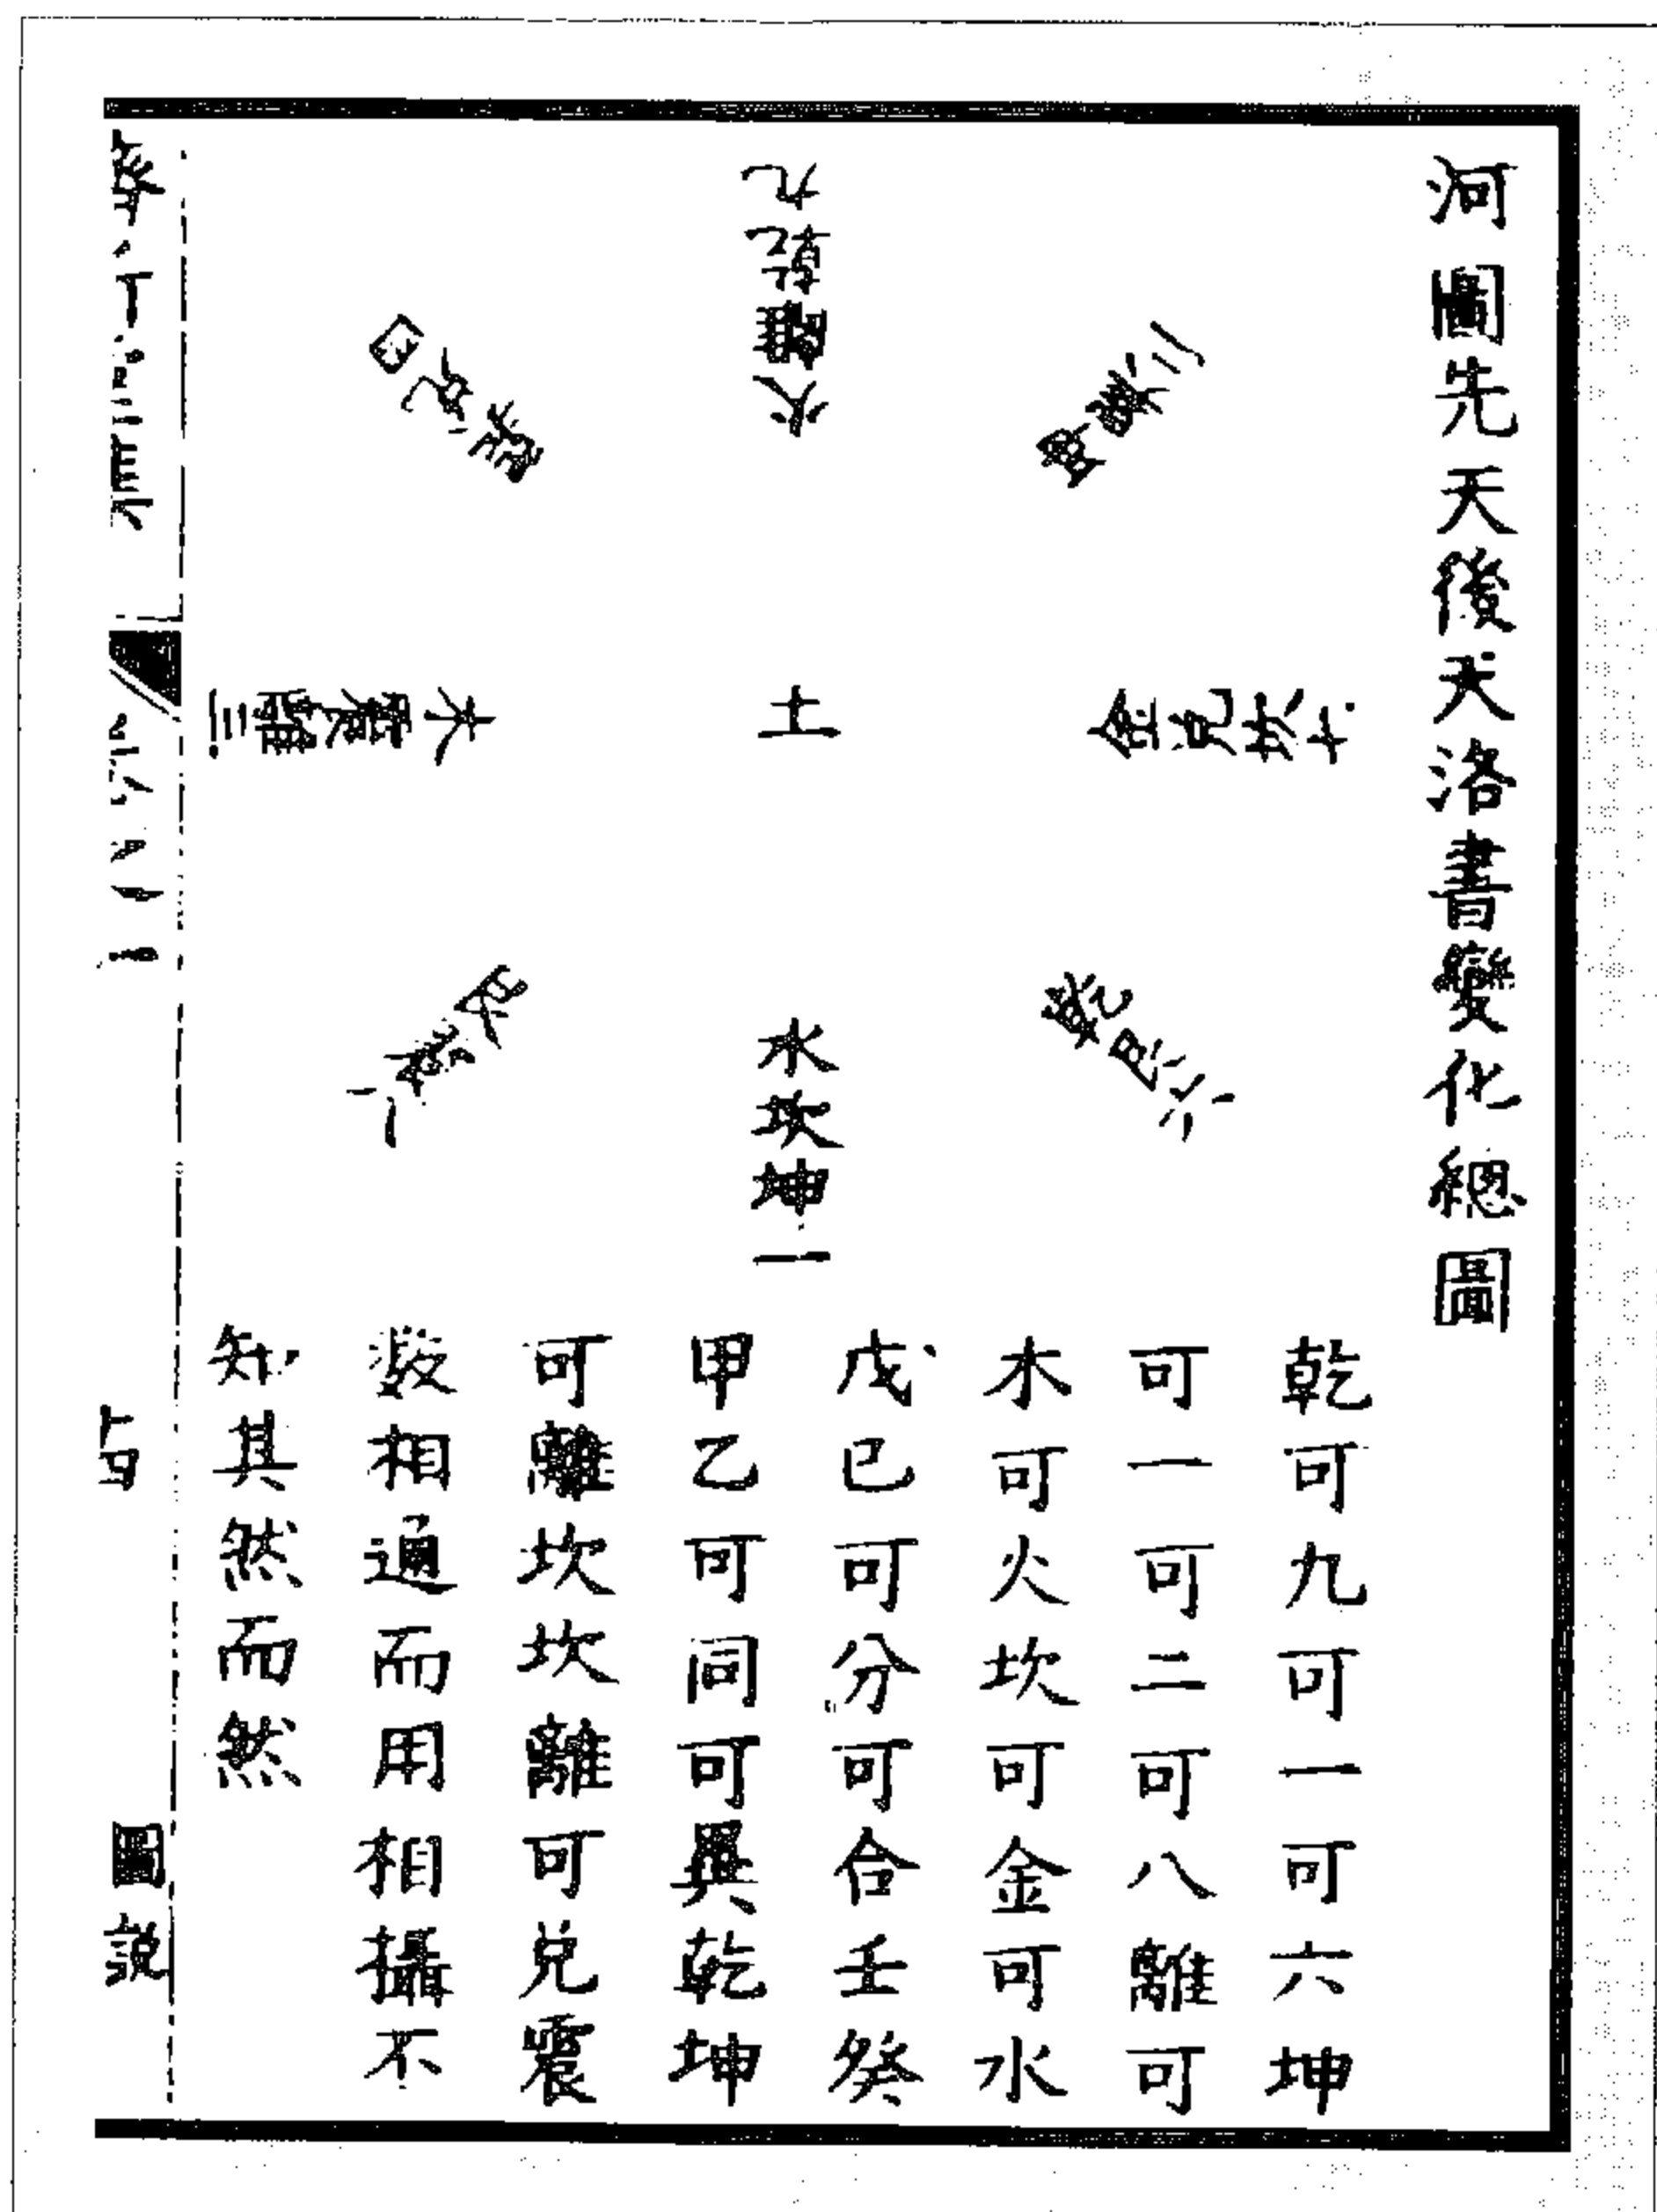 河圖先天後天洛書變化總圖
火離乾九
坤巽二
金兌坎七
乾艮六
水坎坤一
艮震八
木離震三
巽兌四
土
乾可九可一可六坤
可一可二可八離可
木可火坎可金可水
戊己可分可合壬癸
甲乙可同可異乾坤
可離坎坎離可兌震
數相通而用相攝不
知其然而然
圖說